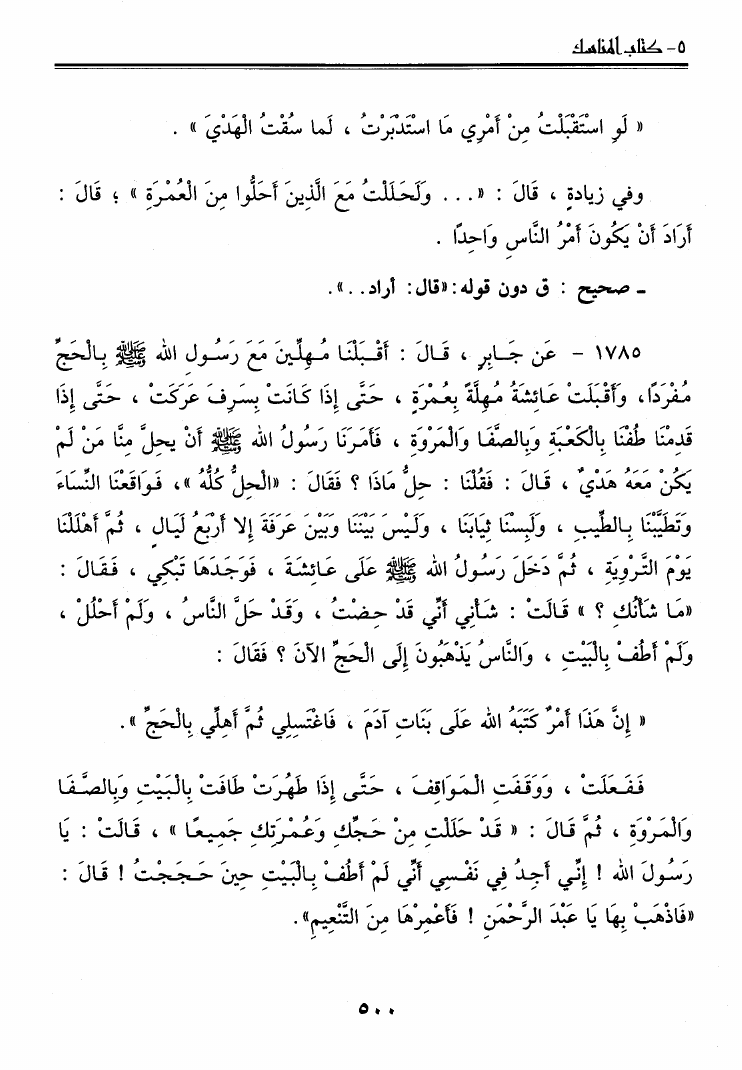 ٥- كتاب المناسك
« لَوِ اسْتَقْبَلْتُ مِنْ أَمْرِي مَا اسْتَدْبَرْتُ ، لَما سُقْتُ الْهَدْيَ » .
وفي زيادةٍ ، قَالَ : «... وَلَحَلَلْتُ مَعَ الَّذِينَ أَحَلُّوا مِنَ الْعُمْرَةِ » ؛ قَالَ :
أَرَادَ أَنْ يَكُونَ أَمْرُ النَّاسِ وَاحِدًا .
ـ صحيح : ق دون قوله:«قال: أراد..».
١٧٨٥ - عَن جَابِرٍ ، قَالَ : أَقْبَلْنَا مُهِلِّينَ مَعَ رَسُولِ الله ﷺ بِالْحَجِّ
مُفْرَدًا، وَأَقْبَلَتْ عَائِشَةُ مُهِلَّةً بِعُمْرَةٍ ، حَتَّى إِذَا كَانَتْ بِسَرِفَ عَرَكَتْ ، حَتَّى إِذَا
قَدِمْنَا طُفْنَا بِالْكَعْبَةِ وَبِالصَّفَا وَالْمَرْوَةِ ، فَأَمَرَنَا رَسُولُ الله ﷺ أَنْ يحِلَّ مِنَّا مَنْ لَمْ
يَكُنْ مَعَهُ هَدْيٌ ، قَالَ : فَقُلْنَا : حِلُّ مَاذَا ؟ فَقَالَ : «الْحِلُّ كُلُّهُ »، فَوَاقَعْنَا النِّسَاءَ
وَتَطَيَّبْنَا بِالطِّيبِ ، وَلَبِسْنَا ثِيَابَنَا ، وَلَيْسَ بَيْنَنَا وَبَيْنَ عَرَفَةَ إِلا أَرْبَعُ لَيَالٍ ، ثُمَّ أَهْلَلْنَا
يَوْمَ التَّرْوِيَةِ ، ثُمَّ دَخَلَ رَسُولُ الله ﷺ عَلَى عَائِشَةَ ، فَوَجَدَهَا تَبْكِي ، فَقَالَ :
«مَا شَأْنُكِ ؟ » قَالَتْ : شَأْنِي أَنِّي قَدْ حِضْتُ ، وَقَدْ حَلَّ النَّاسُ ، وَلَمْ أَحْلُلْ ،
وَلَمْ أَطُفْ بِالْبَيْتِ ، وَالنَّاسُ يَذْهَبُونَ إِلَى الْحَجِّ الآنَ ؟ فَقَالَ :
« إِنَّ هَذَا أَمْرٌ كَتَبَهُ الله عَلَى بَنَاتِ آدَمَ ، فَاغْتَسِلِي ثُمَّ أَهِلِّي بِالْحَجِّ ».
فَفَعَلَتْ ، وَوَقَفَتِ الْمَوَاقِفَ ، حَتَّى إِذَا طَهُرَتْ طَافَتْ بِالْبَيْتِ وَبِالصَّفَا
وَالْمَرْوَةِ ، ثُمَّ قَالَ : « قَدْ حَلَلْتِ مِنْ حَجِّكِ وَعُمْرَتِكِ جَمِيعًا » ، قَالَتْ : يَا
رَسُولَ الله ! إِنِّي أَجِدُ فِي نَفْسِي أَنِّي لَمْ أَطُفْ بِالْبَيْتِ حِينَ حَجَجْتُ ! قَالَ :
«فَاذْهَبْ بِهَا يَا عَبْدَ الرَّحْمَنِ ! فَأَعْمِرْهَا مِنَ التَّنْعِيمِ».
٥٠٠